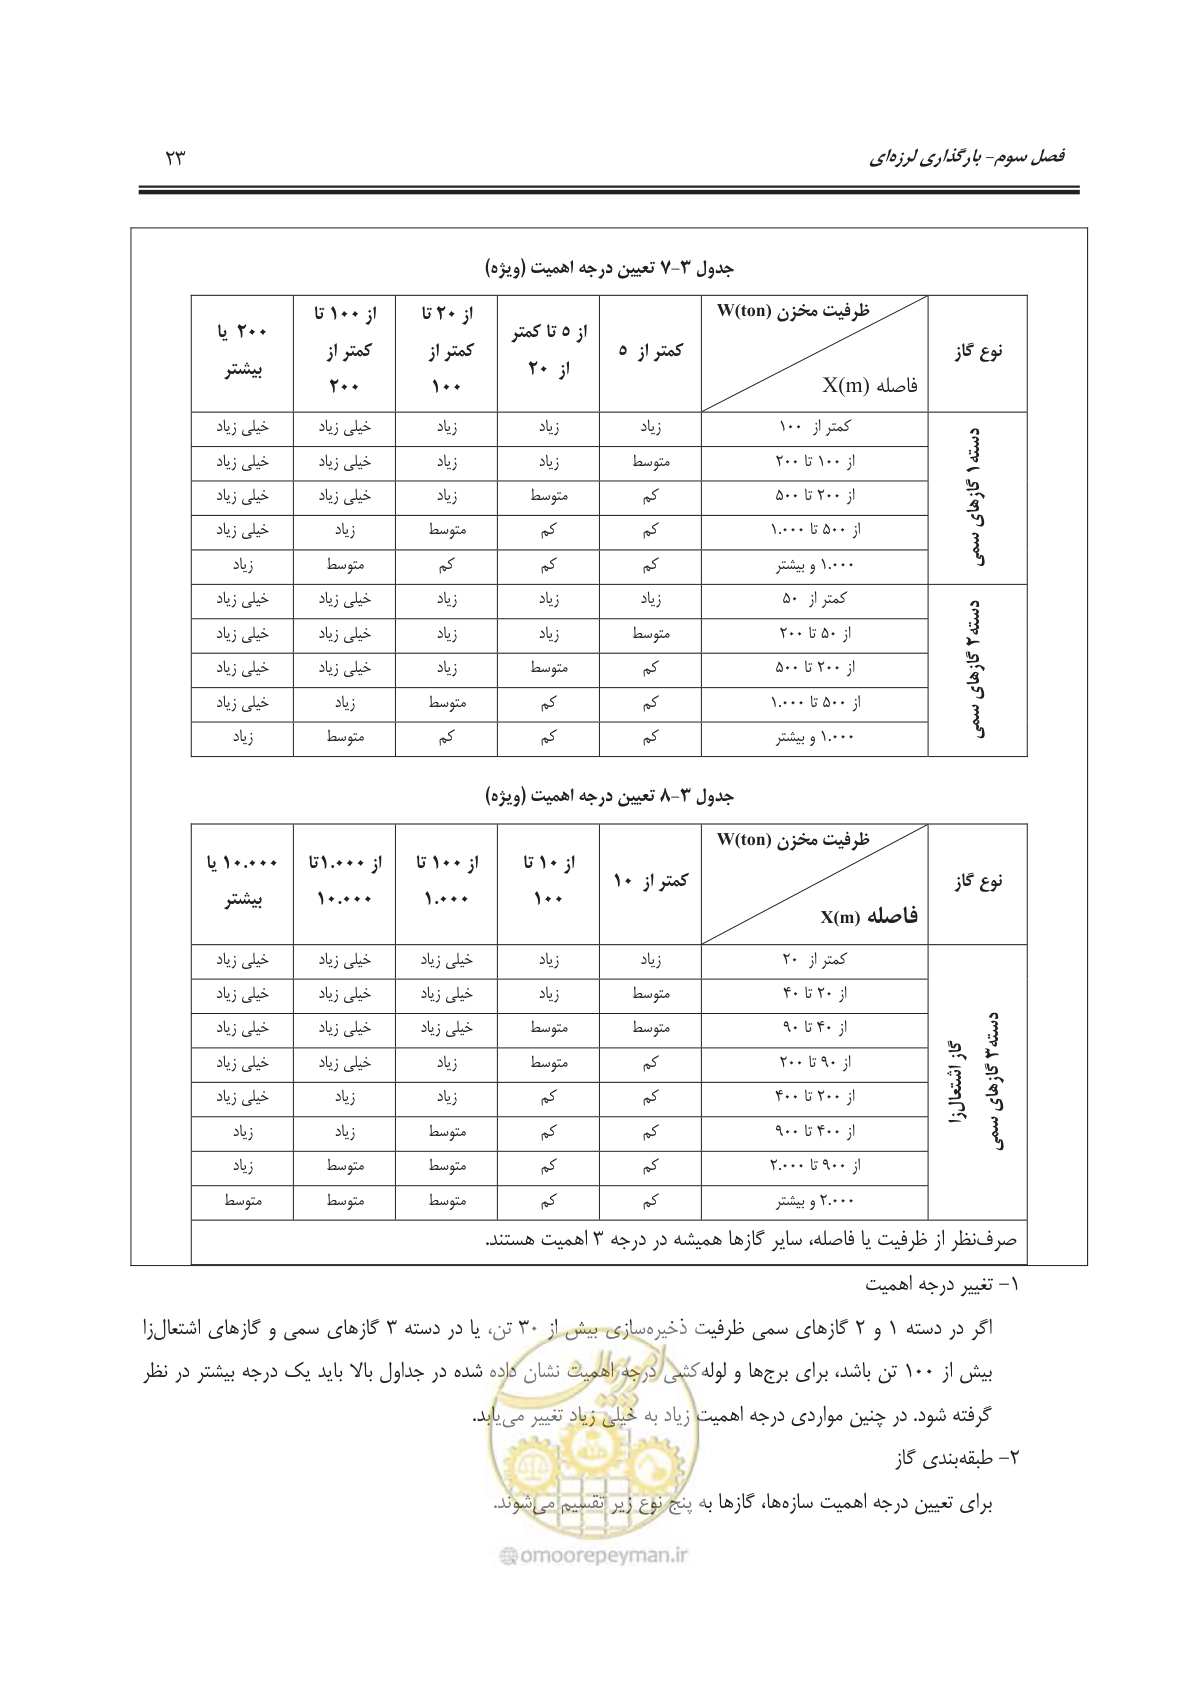 فصل سوم– بارگذاری لرزه‌ای ۲۳
جدول ۳-۷ تعیین درجه اهمیت (ویژه)
نوع گاز ظرفیت مخزن W(ton) فاصله X(m) کمتر از ۵ از ۵ تا کمتر از ۲۰ از ۲۰ تا کمتر از ۱۰۰ از ۱۰۰ تا کمتر از ۲۰۰ ۲۰۰ یا بیشتر
دسته۱ گازهای سمی
کمتر از ۱۰۰ زیاد زیاد زیاد خیلی زیاد خیلی زیاد
از ۱۰۰ تا ۲۰۰ متوسط زیاد زیاد خیلی زیاد خیلی زیاد
از ۲۰۰ تا ۵۰۰ کم متوسط زیاد خیلی زیاد خیلی زیاد
از ۵۰۰ تا ۱.۰۰۰ کم کم متوسط زیاد خیلی زیاد
۱.۰۰۰ و بیشتر کم کم کم متوسط زیاد
دسته۲ گازهای سمی
کمتر از ۵۰ زیاد زیاد زیاد خیلی زیاد خیلی زیاد
از ۵۰ تا ۲۰۰ متوسط زیاد زیاد خیلی زیاد خیلی زیاد
از ۲۰۰ تا ۵۰۰ کم متوسط زیاد خیلی زیاد خیلی زیاد
از ۵۰۰ تا ۱.۰۰۰ کم کم متوسط زیاد خیلی زیاد
۱.۰۰۰ و بیشتر کم کم کم متوسط زیاد
جدول ۳-۸ تعیین درجه اهمیت (ویژه)
نوع گاز ظرفیت مخزن W(ton) فاصله X(m) کمتر از ۱۰ از ۱۰ تا ۱۰۰ از ۱۰۰ تا ۱.۰۰۰ از ۱.۰۰۰تا ۱۰.۰۰۰ ۱۰.۰۰۰ یا بیشتر
دسته۳ گازهای سمی
گاز اشتعال‌زا
کمتر از ۲۰ زیاد زیاد خیلی زیاد خیلی زیاد خیلی زیاد
از ۲۰ تا ۴۰ متوسط زیاد خیلی زیاد خیلی زیاد خیلی زیاد
از ۴۰ تا ۹۰ متوسط متوسط خیلی زیاد خیلی زیاد خیلی زیاد
از ۹۰ تا ۲۰۰ کم متوسط زیاد خیلی زیاد خیلی زیاد
از ۲۰۰ تا ۴۰۰ کم کم زیاد زیاد خیلی زیاد
از ۴۰۰ تا ۹۰۰ کم کم متوسط زیاد زیاد
از ۹۰۰ تا ۲.۰۰۰ کم کم متوسط متوسط زیاد
۲.۰۰۰ و بیشتر کم کم متوسط متوسط متوسط
صرف‌نظر از ظرفیت یا فاصله، سایر گازها همیشه در درجه ۳ اهمیت هستند.
۱– تغییر درجه اهمیت
اگر در دسته ۱ و ۲ گازهای سمی ظرفیت ذخیره‌سازی بیش از ۳۰ تن، یا در دسته ۳ گازهای سمی و گازهای اشتعال‌زا
بیش از ۱۰۰ تن باشد، برای برج‌ها و لوله‌کشی درجه اهمیت نشان داده شده در جداول بالا باید یک درجه بیشتر در نظر
گرفته شود. در چنین مواردی درجه اهمیت زیاد به خیلی زیاد تغییر می‌یابد.
۲– طبقه‌بندی گاز
برای تعیین درجه اهمیت سازه‌ها، گازها به پنج نوع زیر تقسیم می‌شوند.
امور پیمان
@omoorepeyman.ir